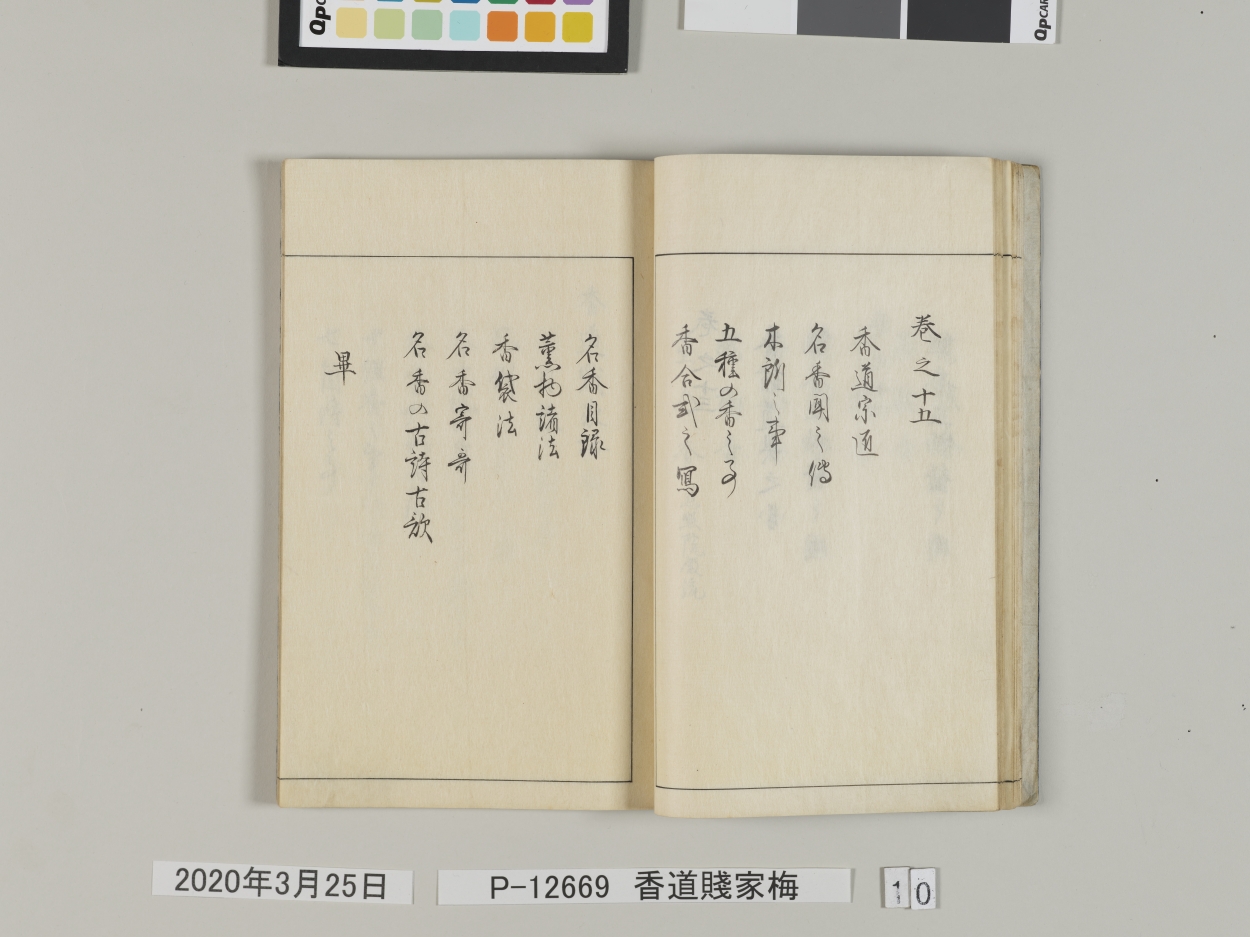 巻之十五
香道宗匠
名香聞之傳
木所之事
五種の香之事
香合式之寫
名香目録
薫物諸法
香袋法
名香寄哥
名香の古詩古歌
畢
2020年3月25日
P-12669 香道賤家梅
10